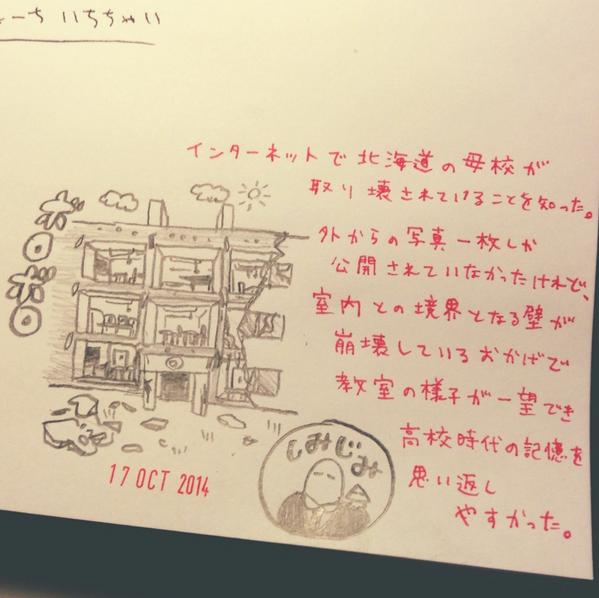 ーち いちちゃい
インターネットで北海道の母校が
取り壊されていることを知った。
外からの写真一枚しか
公開されていなかったけれど、
室内との境界となる壁が
崩壊しているおかげで
教室の様子が一望でき
高校時代の記憶を
思い返し
やすかった。
ボロボロ
しみじみ
17 OCT 2014